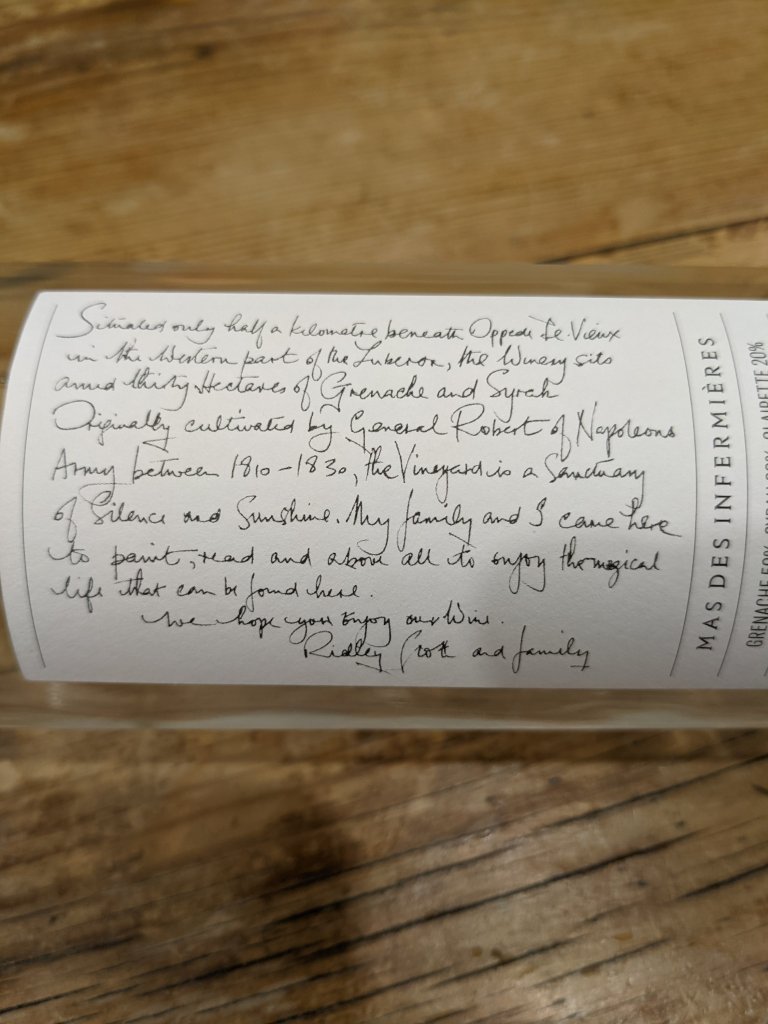 Situated only half a kilometre beneath Oppede Le Vieux
in the Western part of the Luberon, the Winery sits
amid thirty Hectares of Grenache and Syrah
Originally cultivated by General Robert of Napoleons
Army between 1810-1830, the Vineyard is a Sanctuary
of Silence and Sunshine. My family and I came here
to paint, read and above all to enjoy the magical
life that can be found here.
We hope you Enjoy our Wine.
Ridley Scott and family
MAS DES INFERMIÈRES
GRENACHE 50% CLAIRETTE 20%